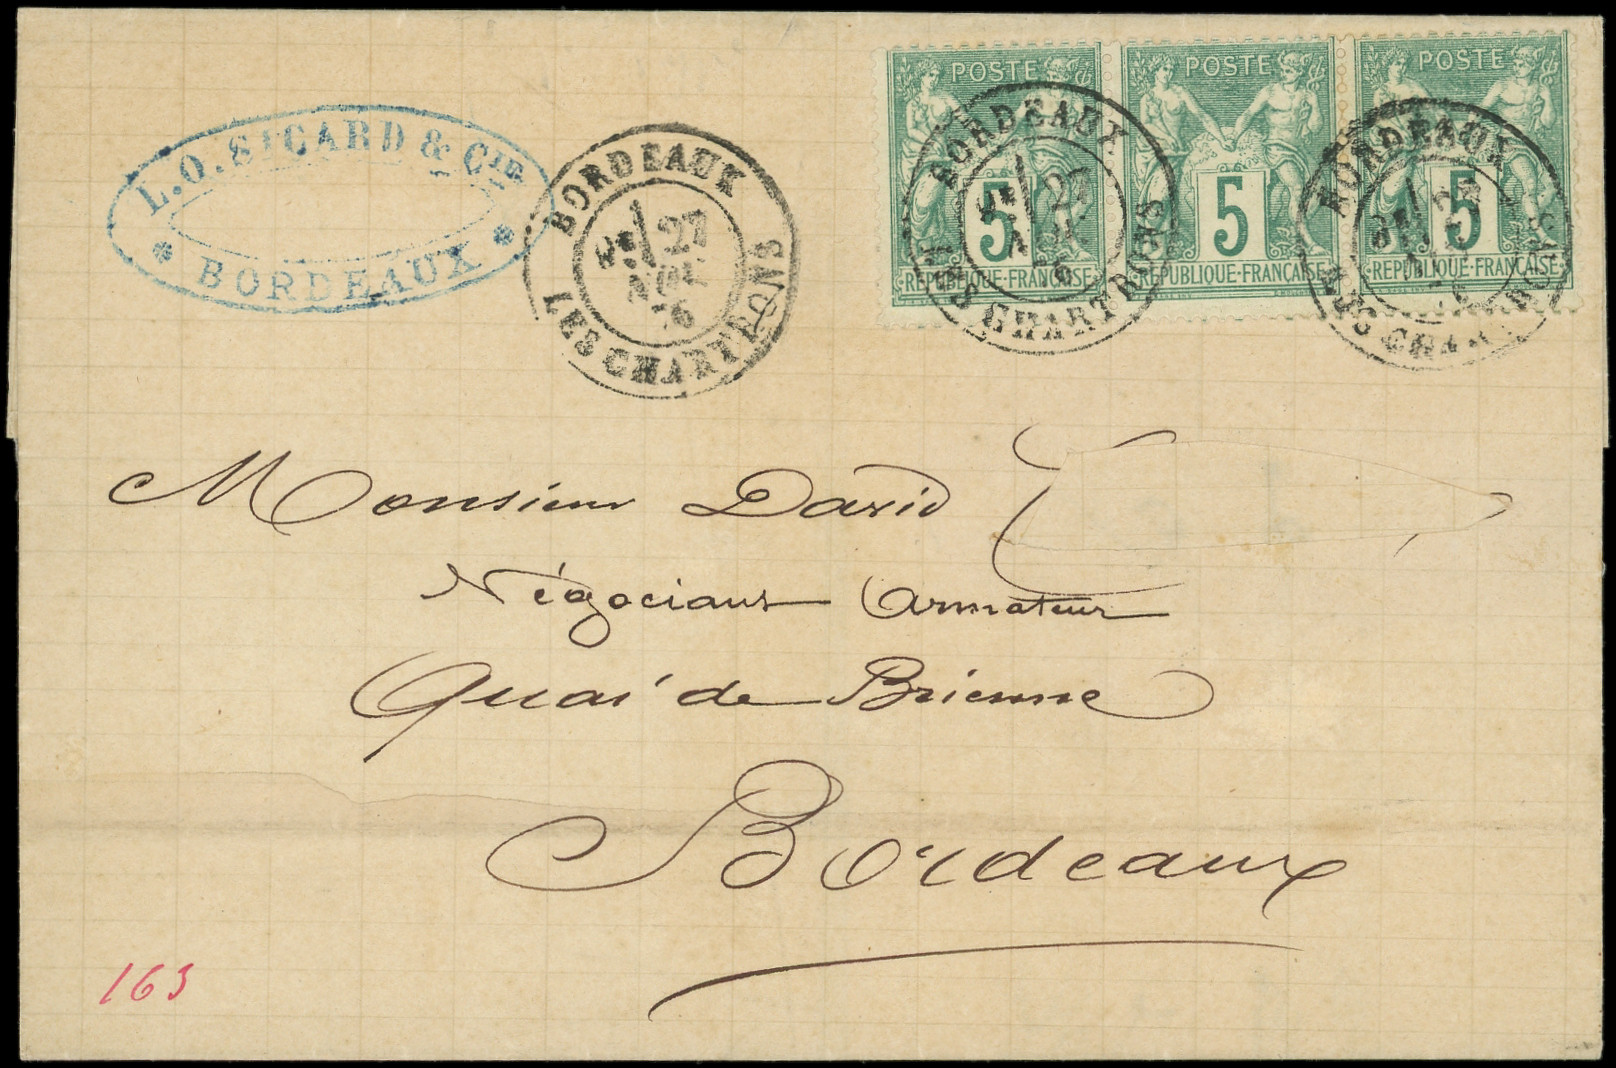 L.O. SICARD & CIE
BORDEAUX
BORDEAUX
27
NOV.
76
LES CHARTRONS
POSTE
5
REPUBLIQUE-FRANÇAISE
POSTE
5
REPUBLIQUE-FRANÇAISE
POSTE
5
REPUBLIQUE-FRANÇAISE
BORDEAUX
27
76
LES CHARTRONS
BORDEAUX
27
76
LES CHARTRONS
Monsieur David
Négociant Armateur
Quai de Brienne
Bordeaux
163